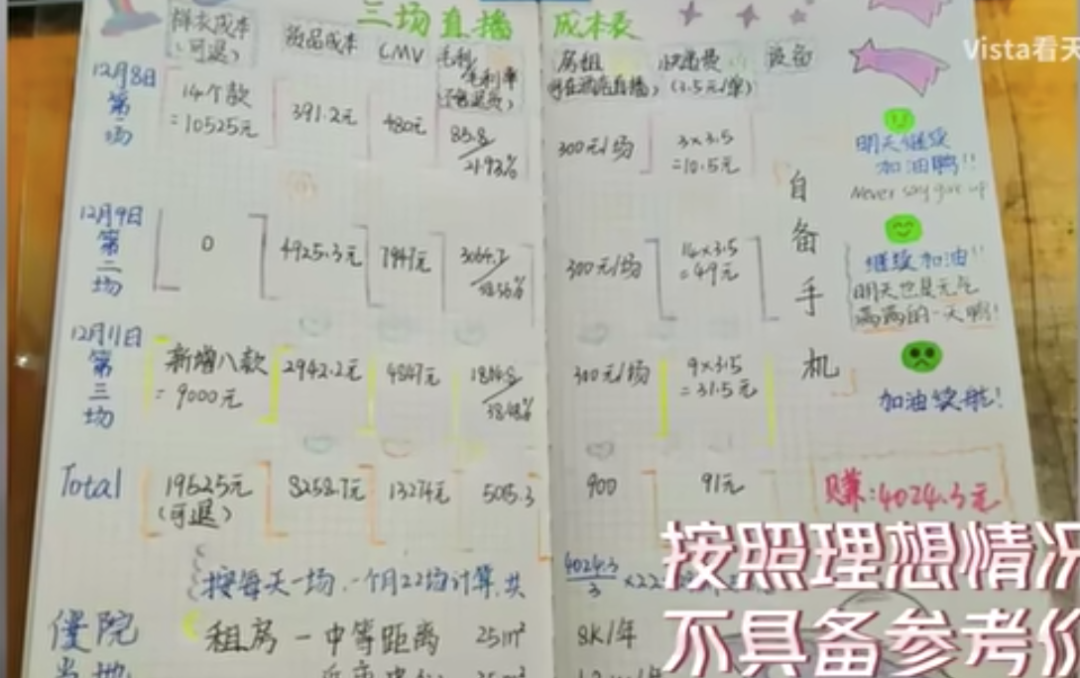 三场直播 成本表
Vista看天
样衣成本
(可退)
货品成本
GMV
毛利
毛利率
房租
快递费
(3.5元/单)
设备
12月8日
第一场
14个款
=10525元
391.2元
480元
85.8
21.93%
300元/场
3×3.5
=10.5元
明天继续
加油鸭!!
Never say give up
12月9日
第二场
0
4925.3元
300元/场
14×3.5
=49元
继续加油!!
明天也是元气
满满的一天啊!
自备手机
12月11日
第三场
新增八款
=9000元
2942.2元
300元/场
9×3.5
=31.5元
加油续航!
Total
19525元
(可退)
8258.7元
13274元
5015.3
900
91元
赚:4024.3元
按每天一场,一个月22场计算,共
4024.3
3
×22
按照理想情况
不具备参考价
租房 一中等距离 25m² 8K/年
当地